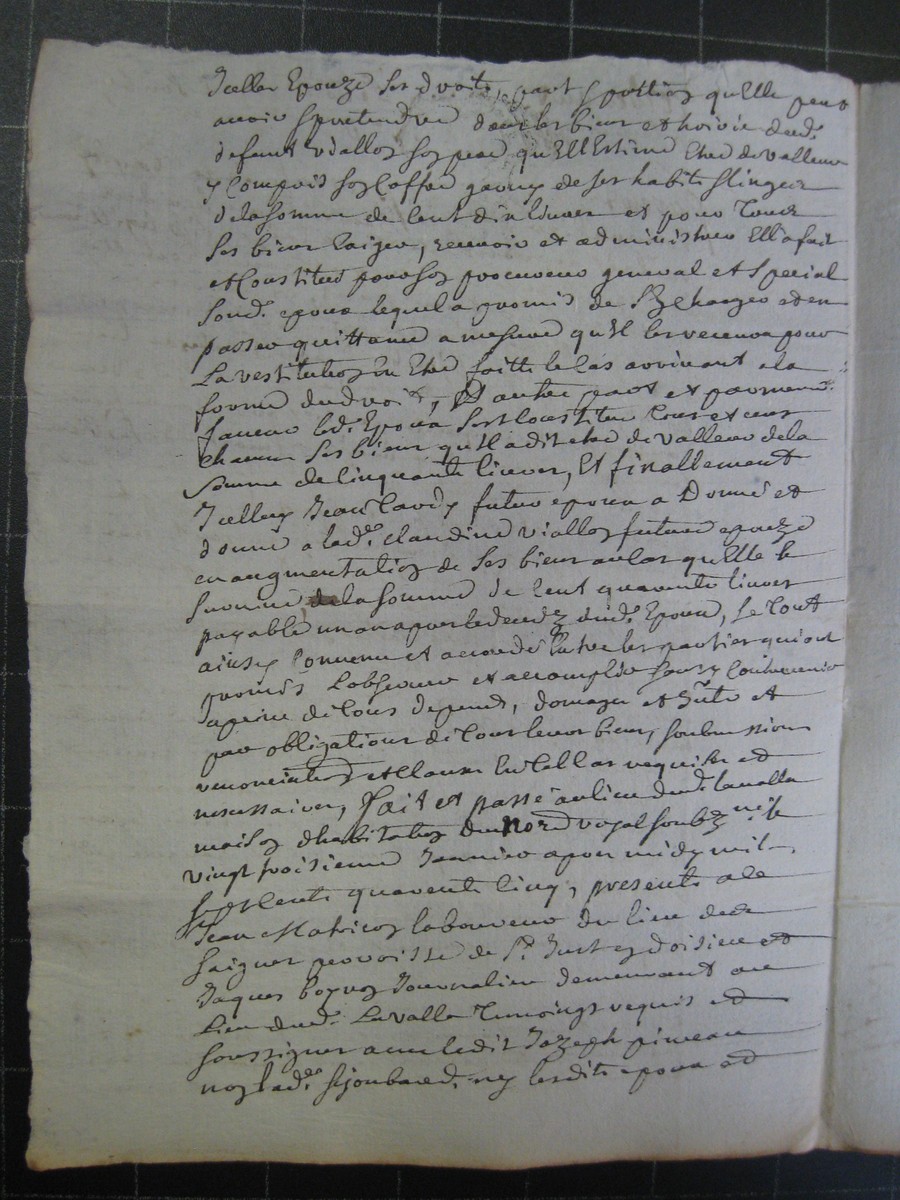 Icelle Epouze ses droits, part & portion qu'elle peut
avoir & pretendre dans les biens et hoirie dud.
defunt viallon son pere qu'Ell Estime Etre de valleur
y Compris son Coffre garny de ses habits & linges
de la somme de Cent dix livres et pour tous
ses biens exiger, recevoir et administrer Ell'a fait
et Constitué pour son procureur general et special
sond. epoux lequel a promis de s'en charger et en
passer quittance a mesure qu'il les recevra pour
La restitution En Etre faitte le cas arrivant a la
forme du droit, D'autre part et par meme
faveur led. Epoux s'est Constitué tous et uns
chacuns ses biens qu'il a dit etre de valleur de la
somme de Cinquante livres, Et finallement
Icelluy Jean futur epoux a Donné et
donne a lad. claudine viallon future epouze
en augmentation de ses biens au cas qu'Elle le
survive de la somme de Cent quarente livres
payable un an apres le deces dud. Epoux, Le tout
ainsy Convenu et accordé Entre les parties qui ont
promis L'observer et accomplir sans y Contrevenir
a peine de tous depens, domages et et
par obligations de tous leurs biens, soubmissions
renonciations et Clauses En tel Cas requises et
nesessaires, fait et passé au lieu dud. lavalla
maison d'habitation du No.re royal soubz.né le
vingt troisieme Janvier apres midy mil
sept Cents quarente Cinq, presents a ce
Jean Matricon laboureur du lieu de
saignes parroisse de St. Just en doisieu et
Jaques Journalier demeurant au
Lieu dud. Lavalla Temoings requis et
soussignes avec ledit Jozeph pineau
non lad. sijoubard. ny lesdits epoux et